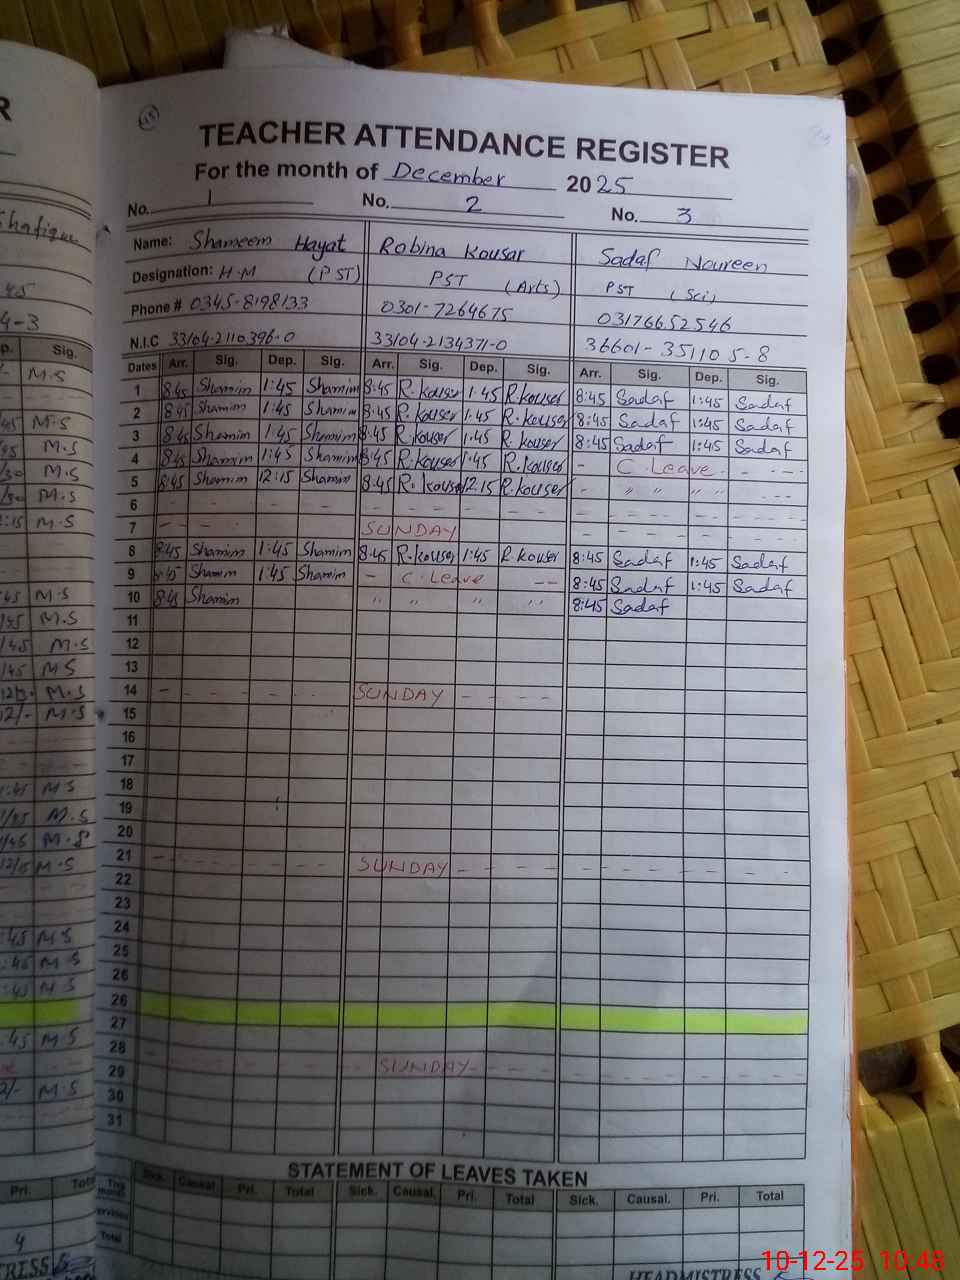 TEACHER ATTENDANCE REGISTER
For the month of December 2025
No. 1 No. 2 No. 3
Name: Shameem Hayat Robina Kousar Sadaf Noureen
Designation: H.M (PST) PST (Arts) PST (Sci)
Phone # 0345-8198133 0301-7264675 03176652546
N.I.C 33104-2110396-0 33104-2134371-0 36601-35110 5-8
Dates Arr. Sig. Dep. Sig. Arr. Sig. Dep. Sig. Arr. Sig. Dep. Sig.
1 8:45 Shamim 1:45 Shamim 8:45 R.kouser 1:45 R.kouser 8:45 Sadaf 1:45 Sadaf
2 8:45 Shamim 1:45 Shamim 8:45 R.kouser 1:45 R.kouser 8:45 Sadaf 1:45 Sadaf
3 8:45 Shamim 1:45 Shamim 8:45 R.kouser 1:45 R.kouser 8:45 Sadaf 1:45 Sadaf
4 8:45 Shamim 1:45 Shamim 8:45 R.kouser 1:45 R.kouser - C.Leave - ---
5 8:45 Shamim 12:15 Shamim 8:45 R.kouser 12:15 R.kouser - " " " " ---
6
7 SUNDAY
8 8:45 Shamim 1:45 Shamim 8:45 R.kouser 1:45 R.kouser 8:45 Sadaf 1:45 Sadaf
9 8:45 Shamim 1:45 Shamim - C.Leave -- 8:45 Sadaf 1:45 Sadaf
10 8:45 Shamim " " " " 8:45 Sadaf
11
12
13
14 SUNDAY
15
16
17
18
19
20
21 SUNDAY
22
23
24
25
26
26
27
28
29 SUNDAY
30
31
STATEMENT OF LEAVES TAKEN
This month Sick. Causal. Pri. Total Sick. Causal. Pri. Total Sick. Causal. Pri. Total
Total
HEADMISTRESS
10-12-25 10:48